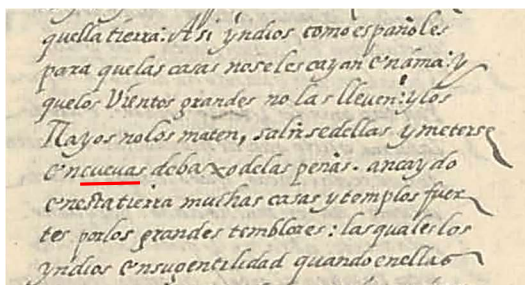 quella tierra: Asi yndios como españoles
para que las casas no se les cayan enáma: y
quelos Vientos grandes no las lleven: y los
Rayos nolos maten, salirse dellas y meterse
en cuevas debaxo delas peñas. an caydo
en esta tierra muchas casas y templos fuer-
tes por los grandes temblores: las quales los
yndios en su gentilidad quando en ellas